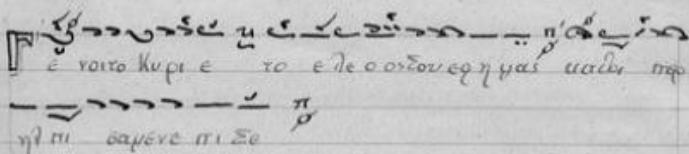 Γέ νοιτο Κυρι ε το ε λε ο οςσου εφ η μας καθα περ
ηλ πι σαμενε πι Σε